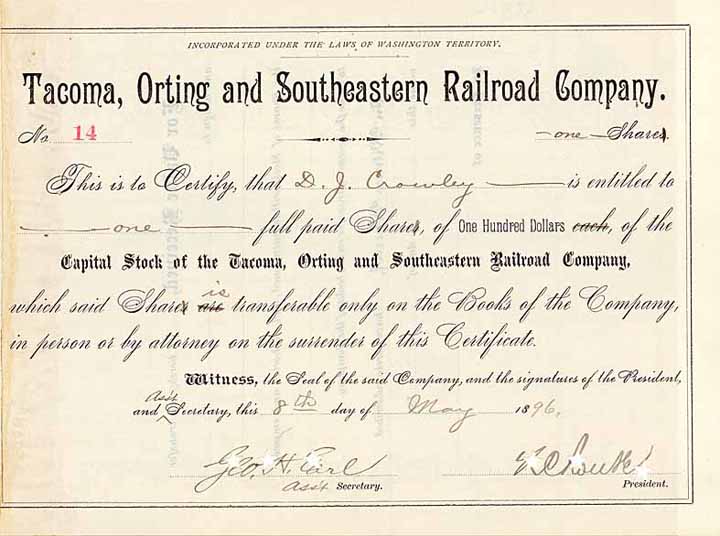 INCORPORATED UNDER THE LAWS OF WASHINGTON TERRITORY.
Tacoma, Orting and Southeastern Railroad Company.
No 14 one Shares.
This is to Certify, that D. J. Crowley is entitled to
one full paid Shares, of One Hundred Dollars each, of the
Capital Stock of the Tacoma, Orting and Southeastern Railroad Company,
which said Shares are is transferable only on the Books of the Company,
in person or by attorney on the surrender of this Certificate.
Witness, the Seal of the said Company, and the signatures of the President,
and Ass't Secretary, this 8th day of May 1896.
Geo. H. Earl
Ass't Secretary. President.